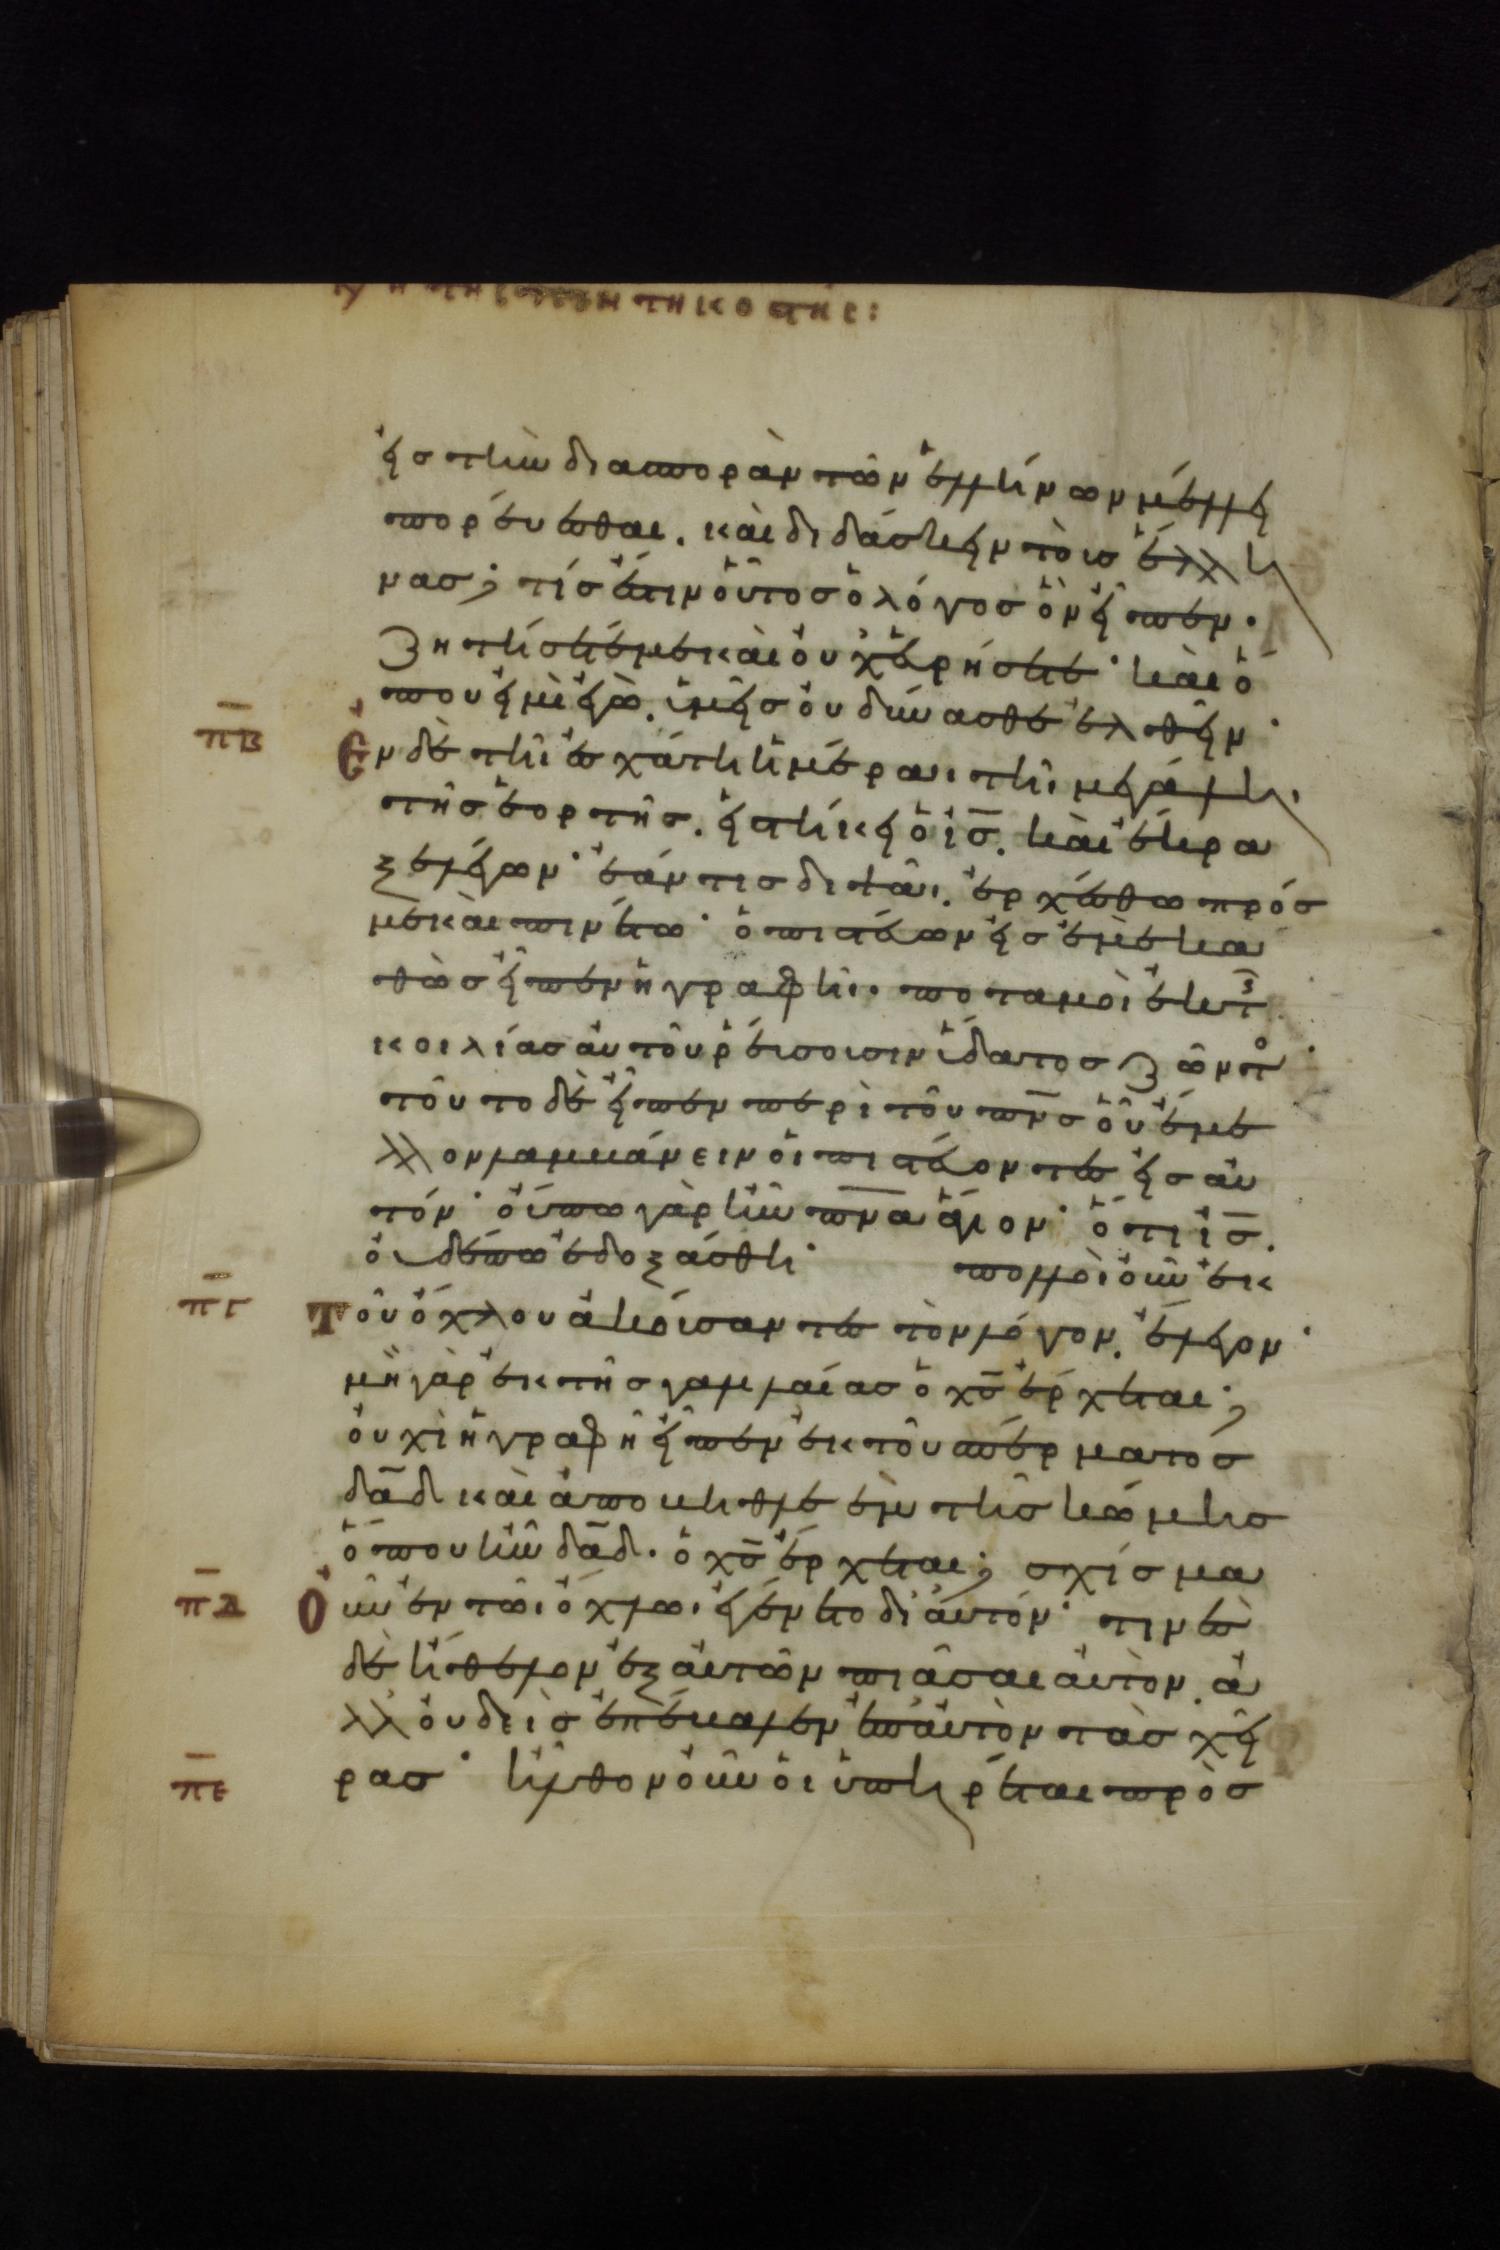 τῆς πεντηκοστῆς:
εἰς τὴν διασπορὰν τῶν ἑλλήνων μέλλει
πορεύεσθαι. καὶ διδάσκειν τοὺς ἕλλη
νας; τίς ἐστιν οὗτος ὁ λόγος ὃν εἶπεν·
ζητήσετέ με καὶ οὐχ εὑρήσετε· καὶ ὅ
που εἰμὶ ἐγὼ. ὑμεῖς οὐ δύνασθε ἐλθεῖν·
πβ
Ἐν δὲ τῆι ἐσχάτη ἡμέραι τῆι μεγάλη
τῆς ἑορτῆς. εἱστήκει ὁ ις. καὶ ἔκρα
ξε λέγων· ἐάν τις διψᾶι. ἐρχέσθω πρός
με καὶ πινέτω· ὁ πιστεύων εἰς ἐμὲ κα
θὼς εἶπεν ἡ γραφή. ποταμοὶ ἐκ τῆς
κοιλίας αὐτοῦ ῥεύσουσιν ὕδατος ζῶντος·
τοῦτο δὲ εἶπεν περὶ τοῦ πνς οὗ ἔμε
λλον λαμβάνειν οἱ πιστεύοντες εἰς αὐ
τόν· οὔπω γὰρ ἦν πνα ἅγιον· ὅτι ις.
οὐδέπω ἐδοξάσθη· πολλοὶ οὖν ἐκ
πγ
Τοῦ ὄχλου ἀκούσαντες τὸν λόγον. ἔλεγον·
μὴ γὰρ ἐκ τῆς γαλιλαίας ὁ χς ἔρχεται;
οὐχὶ ἡ γραφὴ εἶπεν ἐκ τοῦ σπέρματος
δαδ καὶ ἀπο βηθλεὲμ τῆς κώμης
ὅπου ἦν δαδ. ὁ χς ἔρχεται; σχίσμα
πδ
Οὖν ἐν τῶι ὄχλωι ἐγένετο δι' αὐτόν· τινὲς
δὲ ἤθελον ἐξ αὐτῶν πιάσαι αὐτὸν. ἀ
λλ' οὐδεὶς ἐπέβαλεν ἐπ' αὐτὸν τὰς χεῖ
πε
ρας· ἦλθον οὖν οἱ ὑπηρέται πρὸς